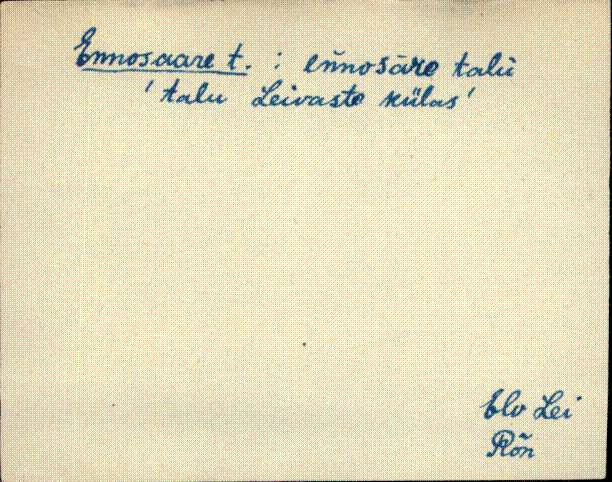 Ennosaare t. : en̆nosāre talù
' talu Leivaste külas'
Elv Lei
Rõn